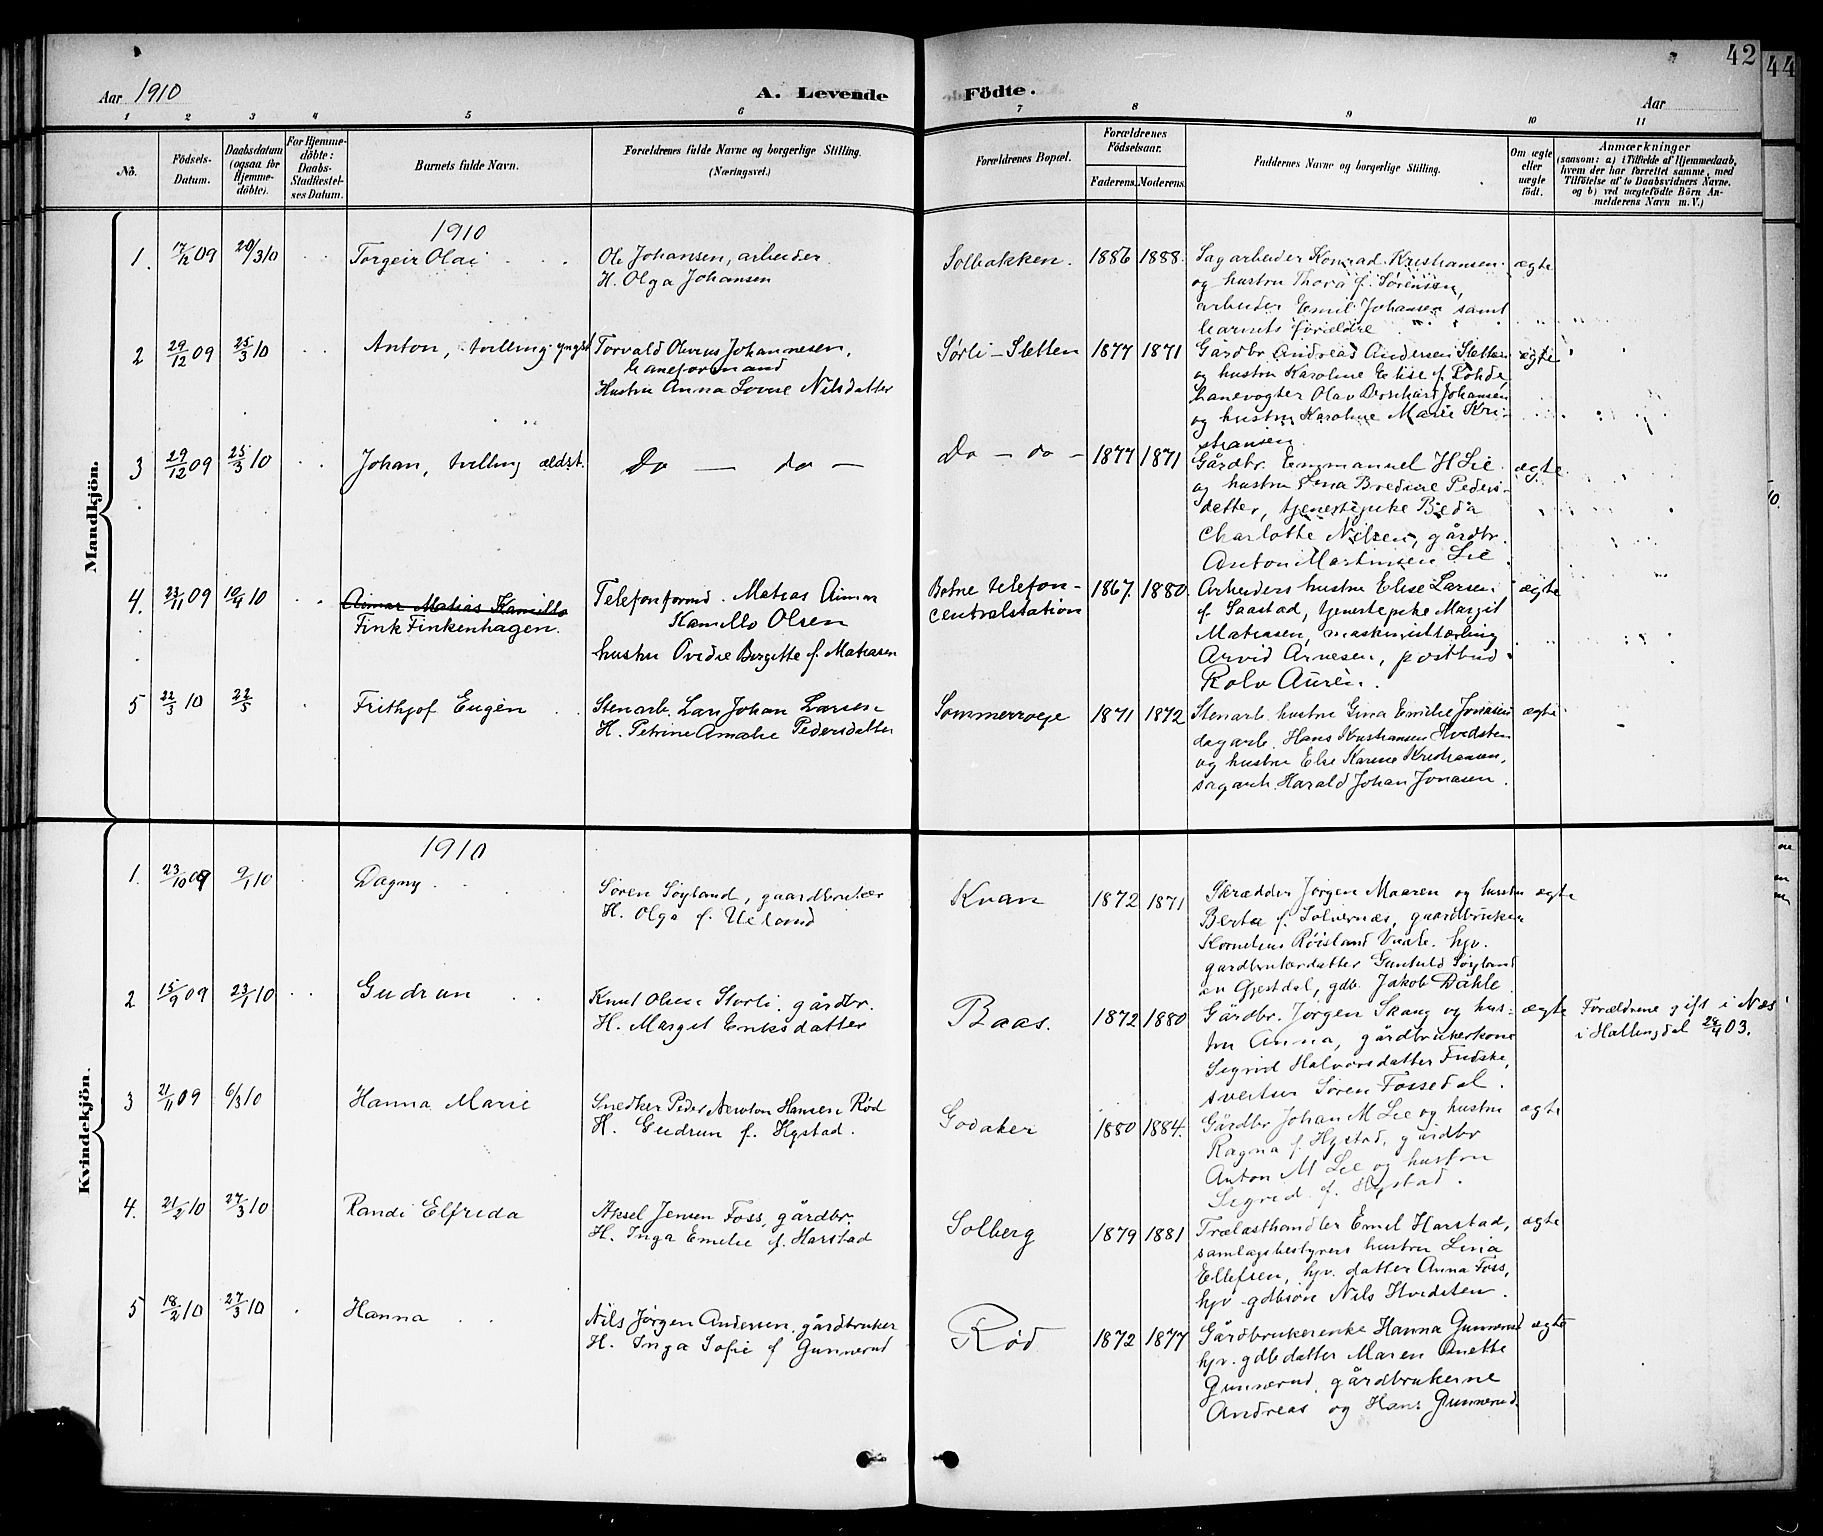 42
44
Aar 1910
A. Levende
Födte.
Aar
1 2 3 4 5 6 7 8 9 10 11
No.
Födsels-
Datum.
Daabsdatum
(ogsaa for
Hjemme-
döbte).
For Hjemme-
döbte:
Daabs-
Stadfæstel-
ses Datum.
Barnets fulde Navn.
Forældrenes fulde Navne og borgerlige Stilling.
(Næringsvei.)
Forældrenes Bopæl.
Forældrenes
Födselsaar.
Faderens.
Moderens.
Faddernes Navne og borgerlige Stilling.
Om ægte
eller
uægte
födt.
Anmærkninger
(saasom: a) i Tilfælde af Hjemmedaab,
hvem der har forrettet samme, med
Tilföielse af to Daabsvidners Navne,
og b) ved uægtefödte Börn An-
melderens Navn m. V.)
Mandkjön.
1910
1. 17/12 09 20/3 10 Torgeir Olai
Ole Johansen, arbeider
H. Olga Johansen
Solbakken. 1886 1888.
Sagarbeider Konrad Kristiansen
og hustru Thora f. Sørensen,
arbeider Emil Johansen samt
barnets forældre
ægte
2 29/12 09 25/3 10 Anton, tvilling yngst
Torvald Olivius Johannesen,
baneformand
Hustru Anna Lovise Nilsdatter
Sørli - Sletten 1877 1871
Gårdbr. Andreas Andersen Sletten
og hustru Karoline Elise f. Rohde,
banevogter Olav Bernhard Johansen
og hustru Karoline Marie Kri-
stiansen.
ægte
3 29/12 09 25/3 10 Johan, tvilling ældst.
Do — do —
Do — do — 1877 1871
Gårdbr. Emmanuel H Lie
og hustru Lina Bredine Peders-
datter, tjenestepike Beda
Charlotte Nilsen, gårdbr.
Anton Martinsen Lie
ægte
4. 23/11 09 10/4 10 Aimar Matias Kamillo
Fink Finkenhagen.
Telefonformd. Matias Aimar
Kamillo Olsen
hustru Ovedie Bergitte f. Matiasen
Botne telefon-
centralstation
1867. 1880.
Arbeiders hustru Elise Larsen
f. Saastad, tjenestepike Margit
Matiasen, maskinistlærling
Arvid Arnesen, postbud
Rolv Aurèn.
ægte
5 22/3 10 22/5 Frithjof Eugèn
Stenarb. Lars Johan Larsen
H. Petrine Amalie Pedersdatter
Sommerroeje 1871 1872
Stenarb. hustru Gina Emilie Jonasen
dagarb. Hans Kristiansen Hvidsten
og hustru Else Karine Kristiansen,
sagarb. Harald Johan Jonasen.
ægte
Kvindekjön.
1910
1. 23/10 09 9/1 10 Dagny
Søren Søyland, gaardbruker
H. Olga f. Ueland
Kvan 1872 1871
Skrædder Jørgen Maaren og hustru
Berta f. Solvernæs, gaardbruker
Kornelius Røisland hjv.
gardbrukerdatter Gunhild Søyland
av Gjestdal, gdb. Jakob Dahle
ægte
2 15/9 09 23/1 10 Gudrun
Knut Olsen Storli, gårdbr.
H. Margit Eriksdatter
Baas. 1872 1880
Gårdbr. Jørgen Skaug og hus-
tru Anna, gårdbrukerkone
Sigrid Halvorsdatter
sveitser Søren Fossedal.
ægte
Forældrene gift i Næs
i Hallingdal 29/11 03.
3 21/11 09 6/3 10 Hanna Marie
Snedker Peder Newton Hansen Rød
H. Gudrun f. Hystad.
Godaker 1880 1884.
Gårdbr Johan M Lie og hustru
Ragna f. Hystad, gårdbr
Anton M Lie og hustru
Sigrid f. Hystad.
ægte
4. 21/2 10 27/3 10 Randi Elfrida
Aksel Jensen Foss, gårdbr.
H. Inga Emelie f. Harstad
Solberg 1879 1881
Trælasthandler Emil Harstad,
samlagsbestyrers hustru Lina
Ellefsen, hjv. datter Anna Foss,
hjv. gdbsøn Nils Hvidsten.
ægte
5 18/2 10 27/3 10 Hanna
Nils Jørgen Andersen gårdbruker
H. Inga Sofie f Gunnerud
Rød 1872 1877
Gårdbrukerenke Hanna Gunnerud
hjv. gdbdatter Maren Anette
Gunnerud, gårdbrukerne
Andreas og Hans Gunnerud.
ægte